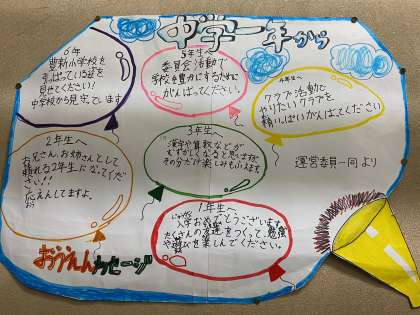 中学一年から
6年
豊新小学校を
ひっぱっている姿を
見せてください!
中学校から見守っています
5年生へ
委員会活動で
学校を豊かにするために
がんばってください。
4年生へ
クラブ活動で
やりたいクラブを
精いっぱいがんばってください
3年生へ
漢字や算数などが
むずかしくなると思いますが
その分だけ楽しみもふえます
2年生へ
お兄さん、お姉さんとして
頼れる2年生になってくだ
さい!!
おうえんしてますよ。
1年生へ
入学おめでとうございます
たくさんの友達をつくって、勉強
や遊びを楽しんでください。
運営委員一同より
おうえんメッセージ